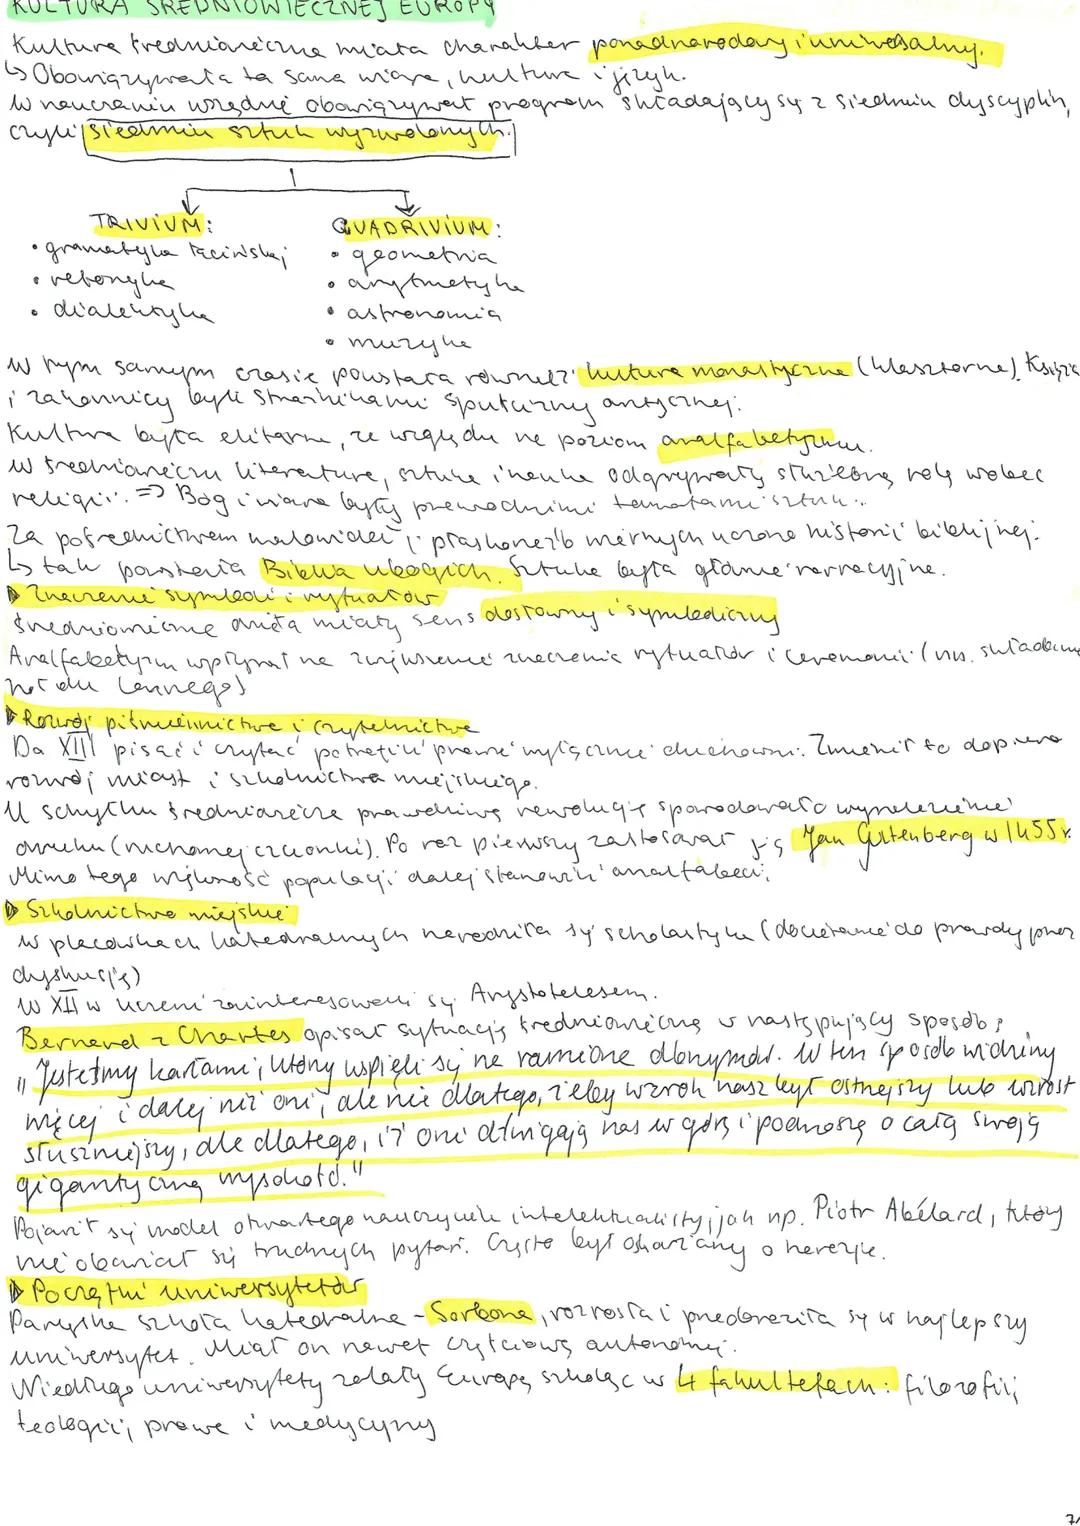 KULTURA ŚREDNIOWIECZNEJ EUROPY
Kultura średniowieczna miała charakter ponadnarodowy i uniwersalny.
↳ Obowiązywała ta sama wiara, kultura i język.
W nauczaniu wszędzie obowiązywał program składający się z siedmiu dyscyplin,
czyli siedmiu sztuk wyzwolonych.
TRIVIUM: QUADRIVIUM:
• gramatyka łacińskiej • geometria
• retoryka • arytmetyka
• dialektyka • astronomia
• muzyka
W tym samym czasie powstała również kultura monastyczna (klasztorna). Księża
i zakonnicy byli strażnikami spuścizny antycznej.
Kultura była elitarna, ze względu na poziom analfabetyzmu.
W średniowieczu literatura, sztuka i nauka odgrywały służebną rolę wobec
religii. => Bóg i wiara były przewodnimi tematami sztuki.
Za pośrednictwem malowideł i płaskorzeźb wiernych uczono historii biblijnej.
↳ tak powstała Biblia ubogich. Sztuka była głównie narracyjna.
▶ Znaczenie symboli i rytuałów
Średniowieczne dzieła miały sens dosłowny i symboliczny
Analfabetyzm wpłynął na zwiększenie znaczenia rytuałów i ceremonii (np. składanie
hołdu lennego)
▶ Rozwój piśmiennictwa i czytelnictwa
Do XIII pisać i czytać potrafili prawie wyłącznie duchowni. Zmienił to dopiero
rozwój miast i szkolnictwa miejskiego.
U schyłku średniowiecza prawdziwą rewolucję spowodowało wynalezienie
druku (ruchomej czcionki). Po raz pierwszy zastosował ją Jan Gutenberg w 1455r.
Mimo tego większość populacji dalej stanowili analfabeci.
▶ Szkolnictwo miejskie
W placówkach katedralnych narodziła się scholastyka (docieranie do prawdy przez
dyskusję)
W XII w uczeni zainteresowali się Arystotelesem.
Bernard z Chartes opisał sytuację średniowieczną w następujący sposób:
„Jesteśmy karłami, którzy wspięli się na ramiona olbrzymów. W ten sposób widzimy
więcej i dalej niż oni, ale nie dlatego, żeby wzrok nasz był ostrzejszy lub wzrost
słuszniejszy, ale dlatego, iż oni dźwigają nas w górę i podnoszą o całą swoją
gigantyczną wysokość."
Pojawił się model otwartego nauczyciela intelektualisty, jak np. Piotr Abélard, który
nie obawiał się trudnych pytań. Często był oskarżany o herezje.
▶ Początki uniwersytetów
Paryska szkoła katedralna - Sorbona, rozrosła i przeobraziła się w najlepszy
uniwersytet. Miał on nawet częściową autonomię.
Niedługo uniwersytety zalały Europę szkoląc w 4 fakultetach: filozofii,
teologii, prawa i medycyny